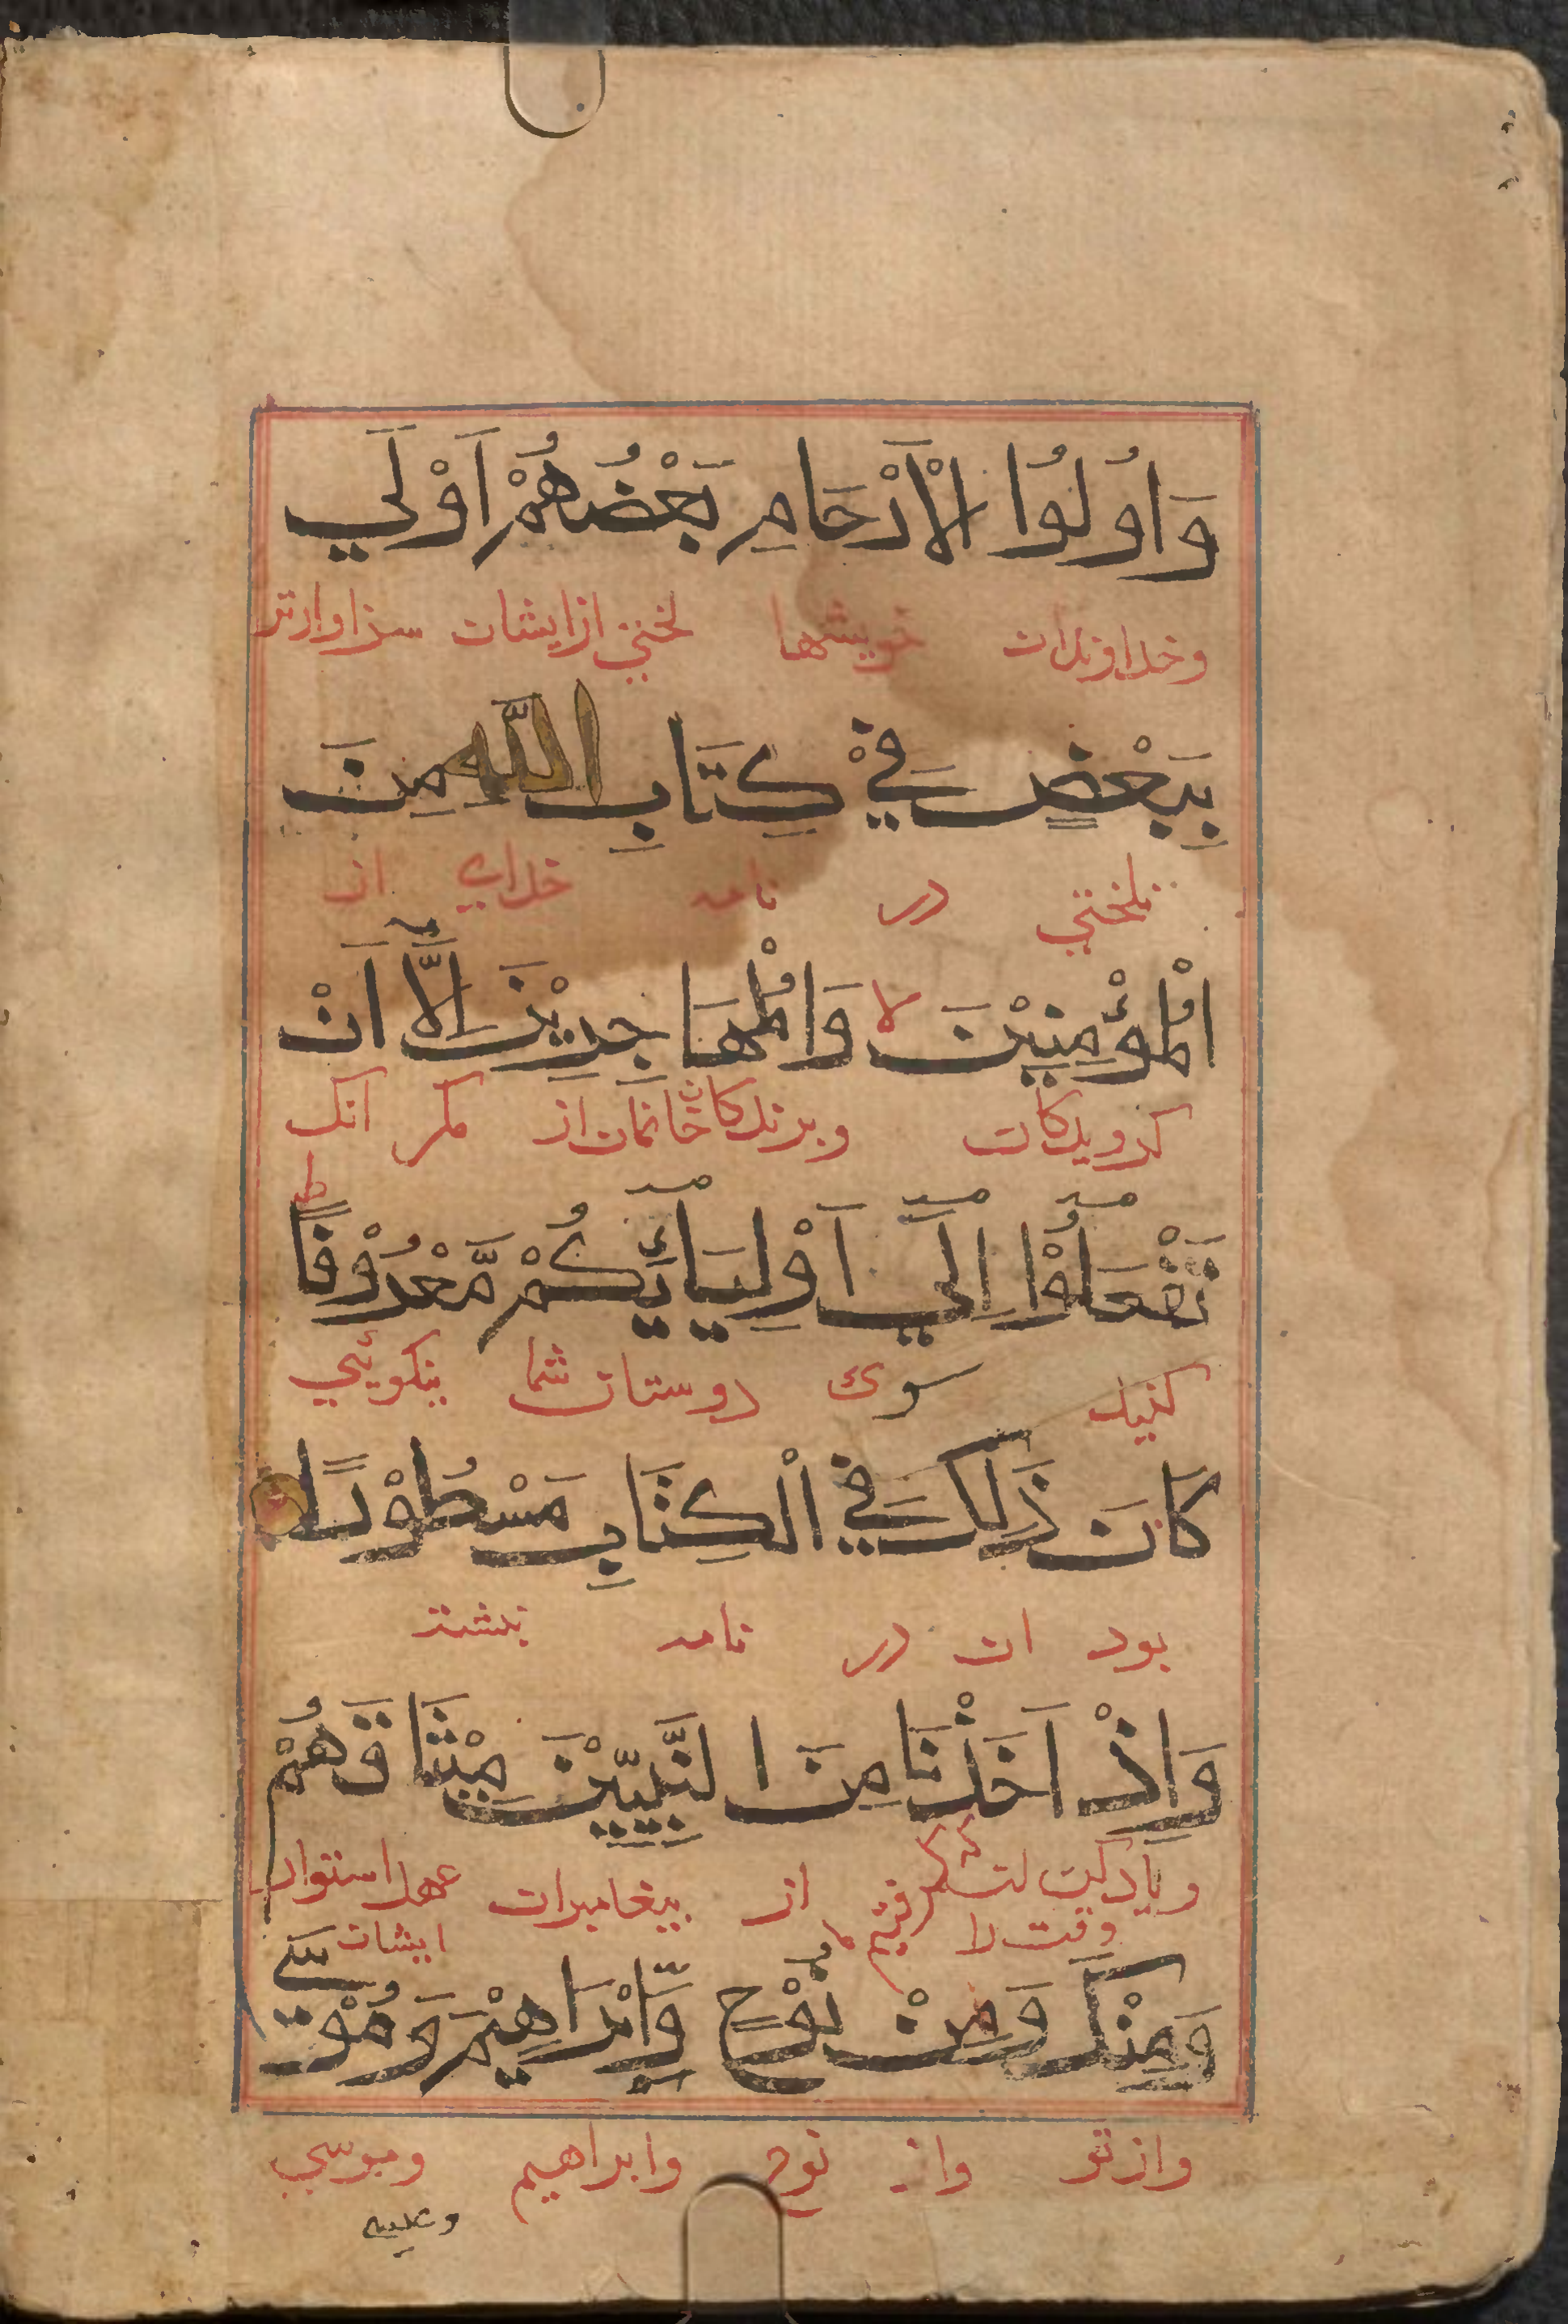 وَاُولُوا الْاَرْحَامِ بَعْضُهُمْ اَوْلَي
وخداوندان خويشها لختي ازايشان سزاوارتر
بِبَعْضٍ فِيْ كِتَابِ اللّٰهِ مِنَ
بلختي در نامه خداي از
الْمُؤْمِنِيْنَ لا وَالْمُهَاجِرِيْنَ اِلَّا اَنْ
كرويدكان وبرندكان خانمان از مكر انك
تَفْعَلُوْا اِلَي اَوْلِيَائِكُمْ مَّعْرُوْفًا ط
كنيد سوى دوستان شما نيكوئي
كَانَ ذَلِكَ فِي الْكِتَابِ مَسْطُوْرًا
بود ان در نامه نبشته
وَاِذْ اَخَذْنَا مِنَ النَّبِيّيْنَ مِيْثَاقَهُمْ
وياد كن گرفتيم از پيغامبران عهد استوار
وقت را ايشان
وَمِنْكَ وَمِنْ نُوْحٍ وَّاِبْرَاهِيْمَ وَمُوْسَي
وازتو واز نوح وابراهيم وموسي
وعيسي